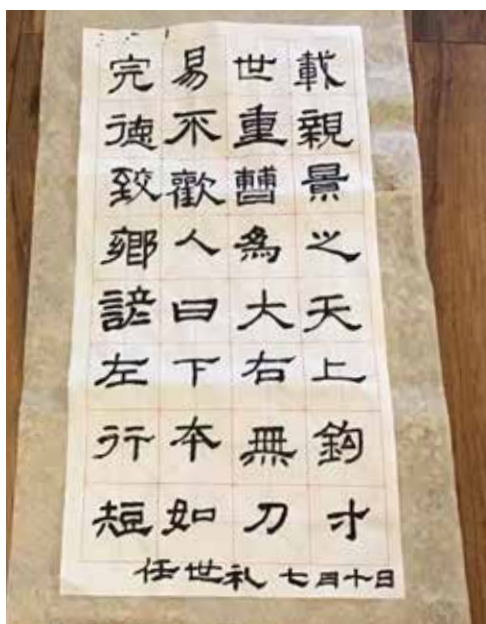 載親景之天上鉤才
世重曹為大右無刀
易不歡人曰下本如
完德致鄉諺左行短
任世礼 七月十日